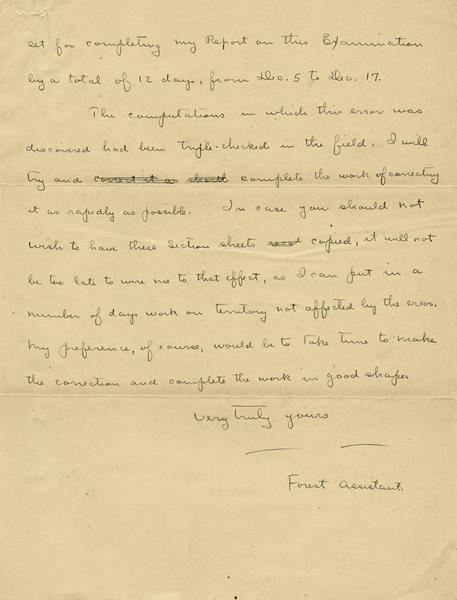 set for completing my Report on this Examination
by a total of 12 days, from Dec. 5 to Dec. 17.
The computations in which this error was
discovered had been triple-checked in the field. I will
try and correct it as shall complete the work of correcting
it as rapidly as possible. In case you should not
wish to have these section sheets copied, it will not
be too late to wire me to that effect, as I can put in a
number of days work on territory not affected by the error.
My preference, of course, would be to take time to make
the correction and complete the work in good shape.
Very truly yours
Forest Assistant.